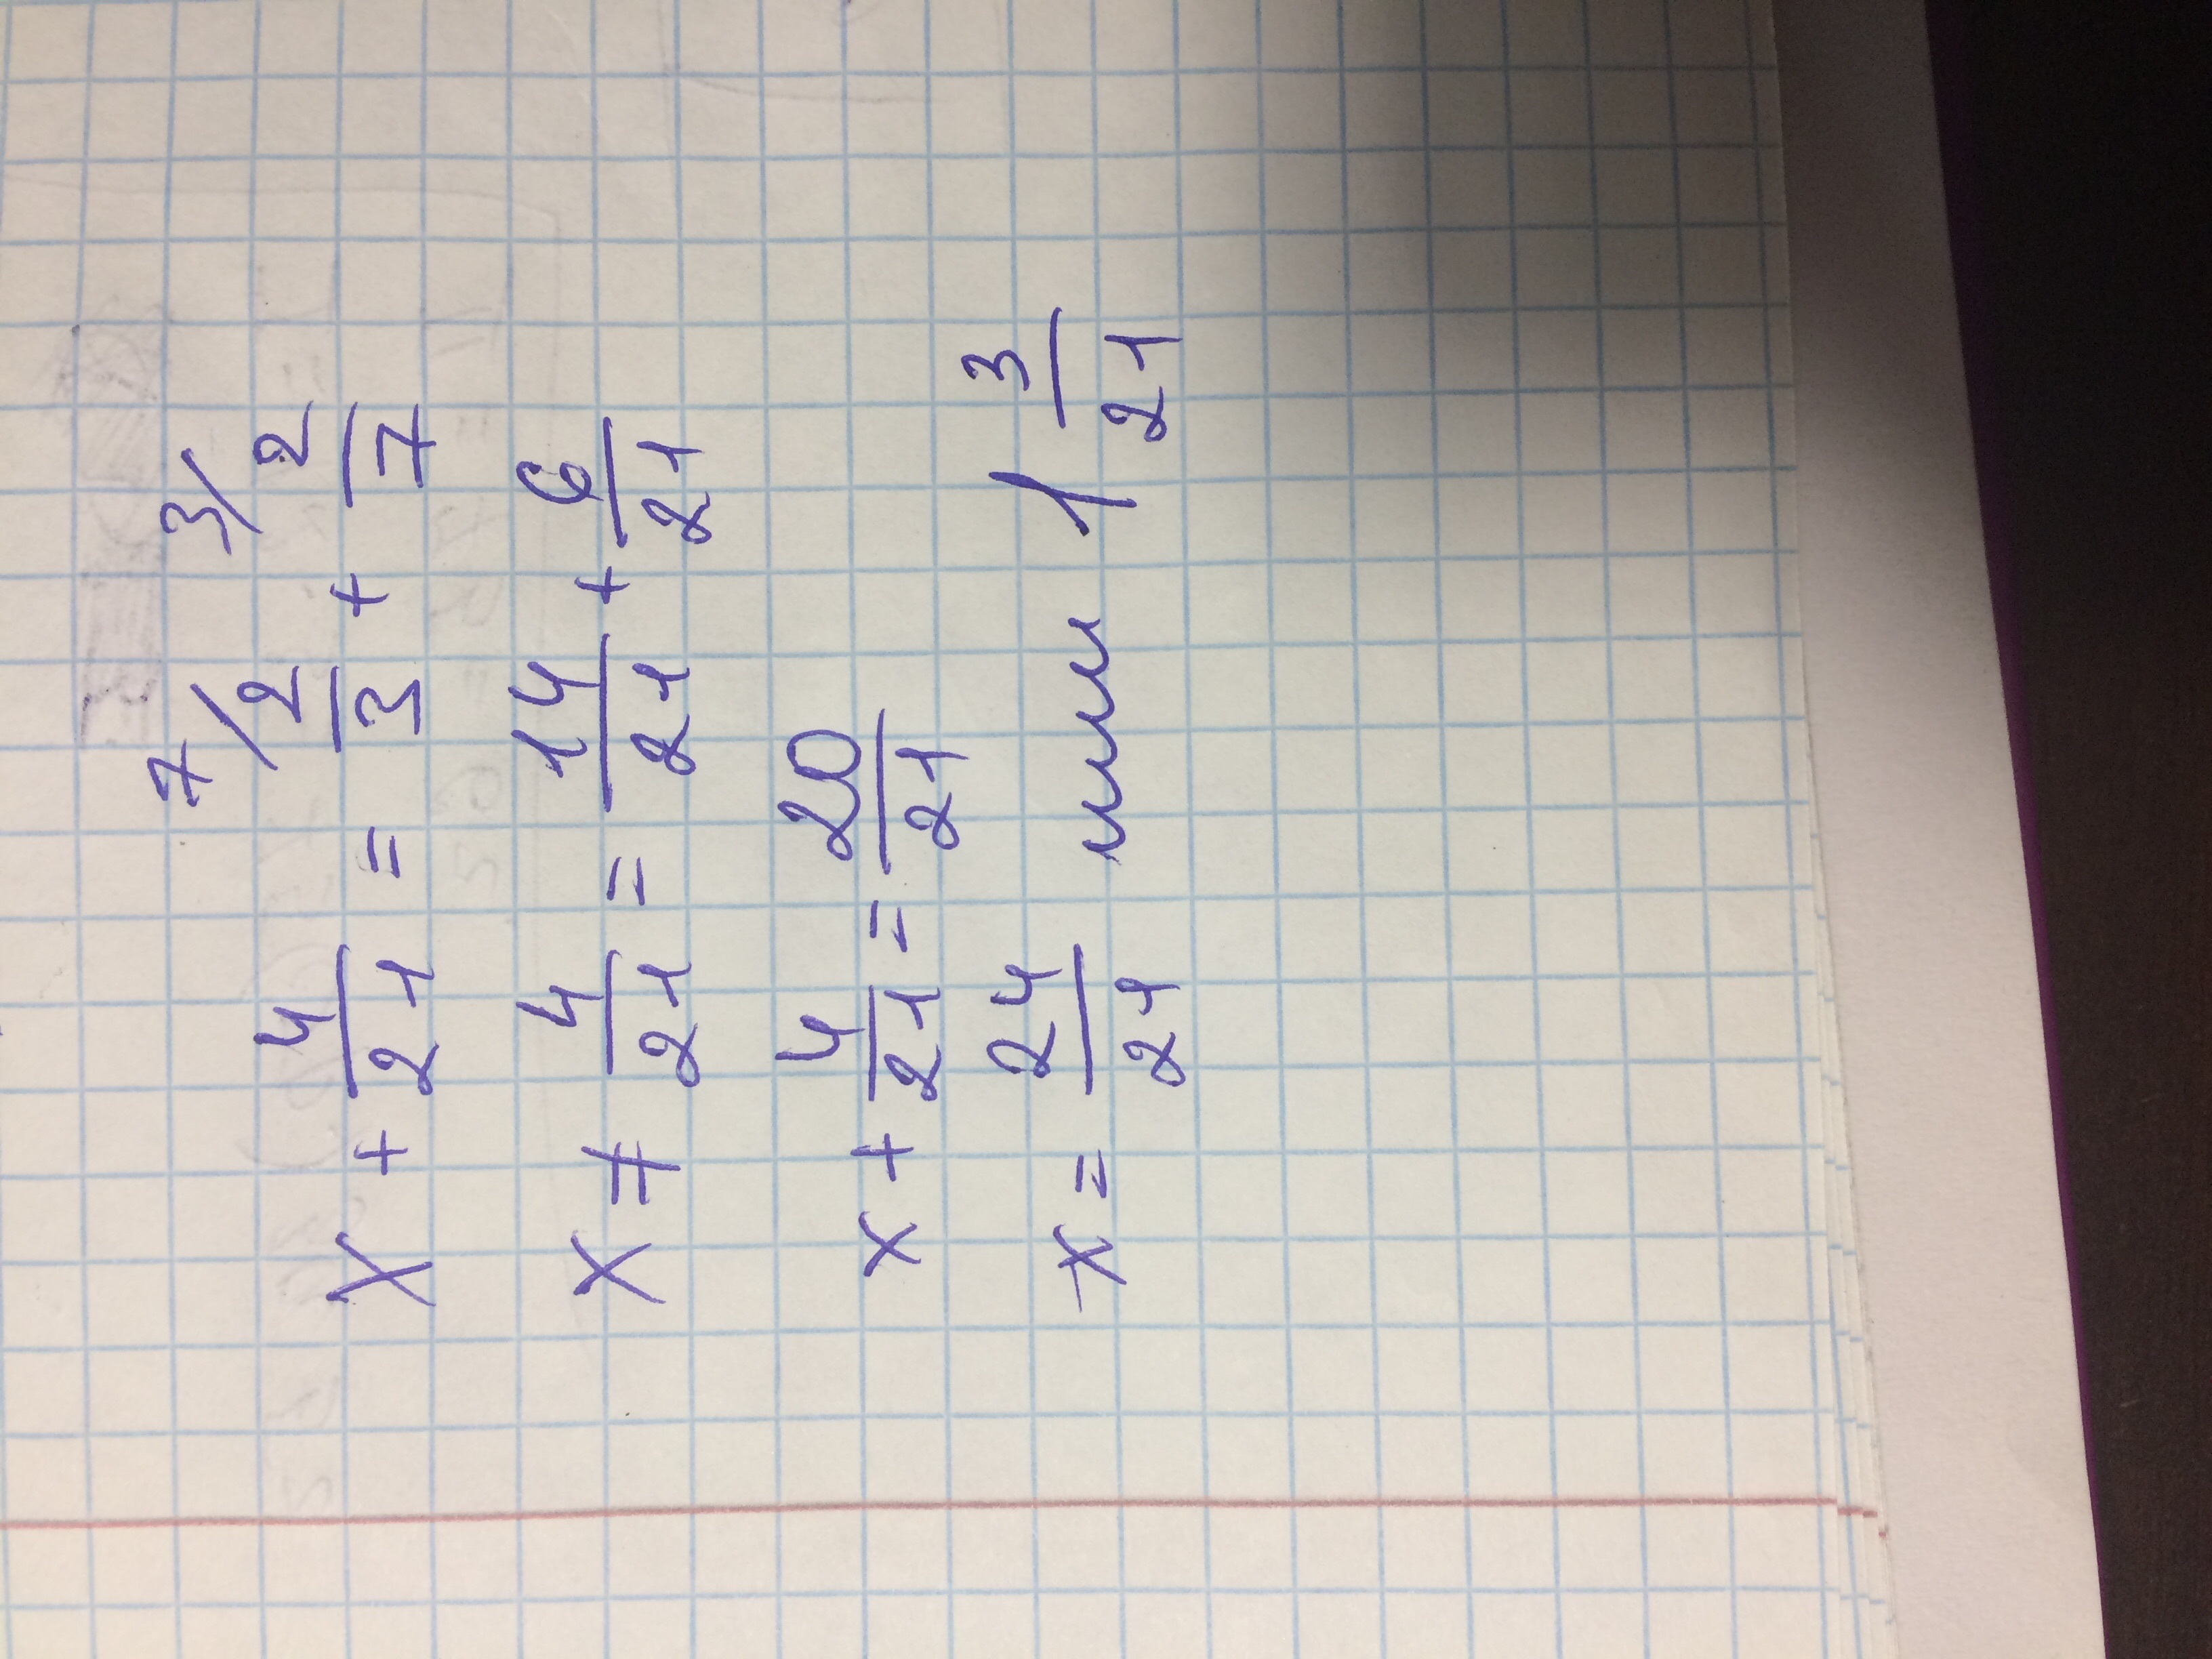 x + 4/21 = 7/ 2/3 + 3/ 2/7
x + 4/21 = 14/21 + 6/21
x + 4/21 = 20/21
x = 24/21 или 1 3/21